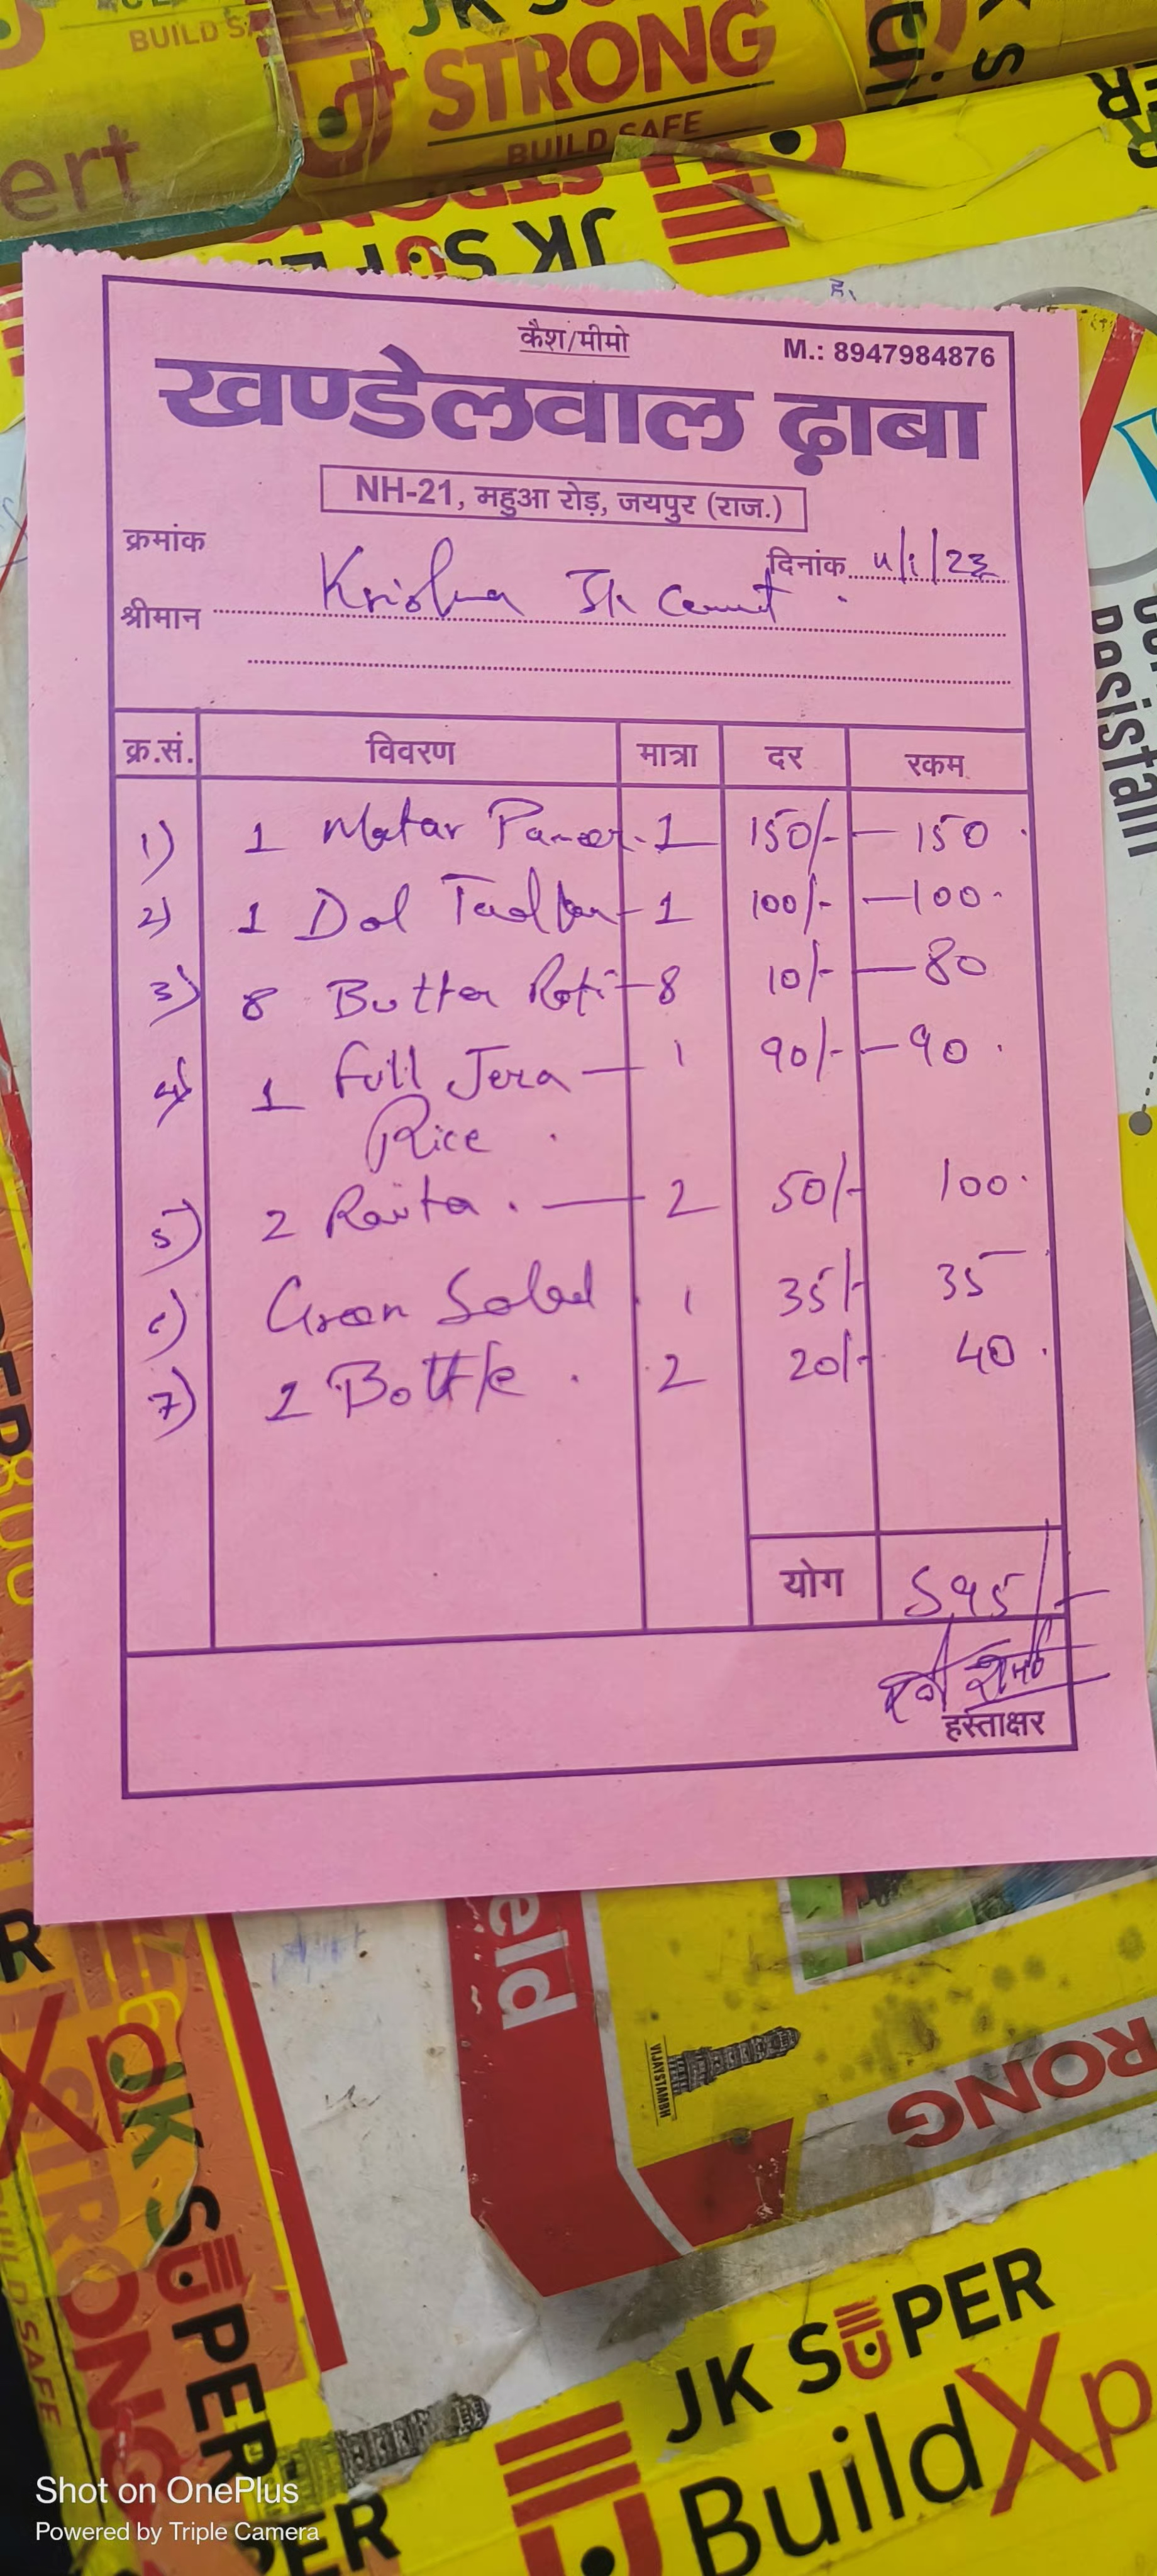 BUILD SA
JK S
STRONG
BUILD SAFE
ert
JK SUPER
कैश/मीमो
M.: 8947984876
खण्डेलवाल ढ़ाबा
NH-21, महुआ रोड़, जयपुर (राज.)
क्रमांक
दिनांक
श्रीमान Krishna Jk
क्र.सं. विवरण मात्रा दर रकम
1) 1 Matar Paneer - 1 150/- - 150
2) 1 Dal - 1 100/- - 100
3) 8 Butter Roti - 8 10/- - 80
4) 1 Full Jera - 1 90/- - 90
Rice
5) 2 Raita - 2 50/- 100
6) Green Salad 1 35/- 35
7) 2 Bottle 2 20/- 40
योग 595/-
हस्ताक्षर
eld
VIJAYSTAMBH
RONG
JK SUPER
STRONG
BUILD SAFE
JK SUPER
BuildXp
PER
Shot on OnePlus
Powered by Triple Camera